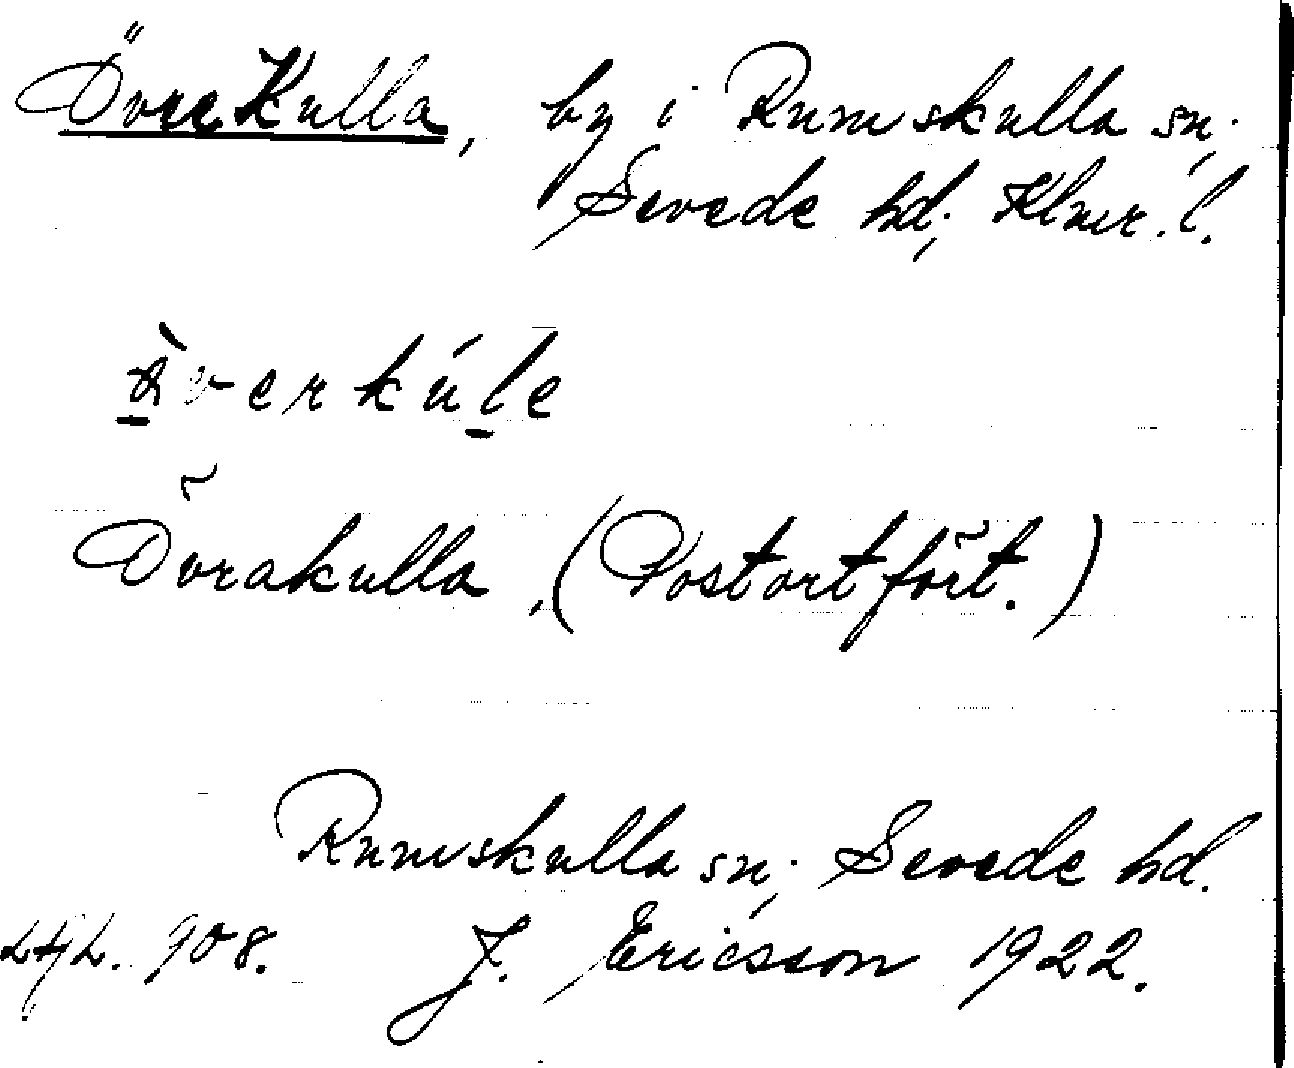 Övre Kulla, by i Rumskulla sn,
Sevede hd, Klmr. l.
Övrakulla, (Postortfört.)
Rumskulla sn, Sevede hd.
908. J. Ericsson 1922.